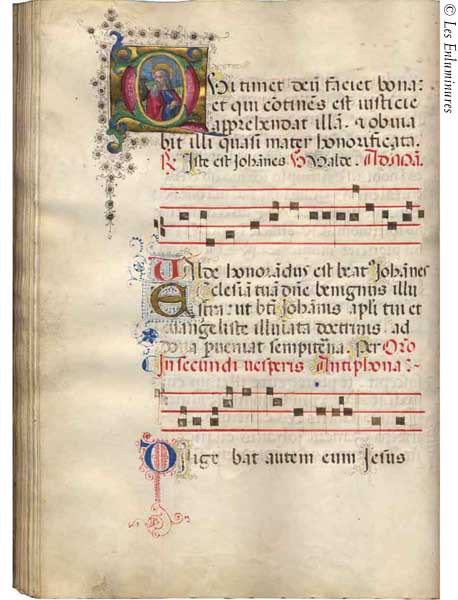 Qui timet deū faciet bona:
et qui cōtinēs est iusticie
apprehendat illā. & obvia
bit illi quasi mater honorificata.
R Iste est Johānes V Valde. Ad nōā.
Valde honorādus est beat' Johānes
Ecclesiā tuā dñe benignus illu
stra: ut bti Johānis apli tui et
euangeliste illuīata doctrinis. ad
dona pveniat sempitēna. Per Oro
In secundi vesperis Antiphona:
Dilige bat autem eum Jesus
© Les Enluminures